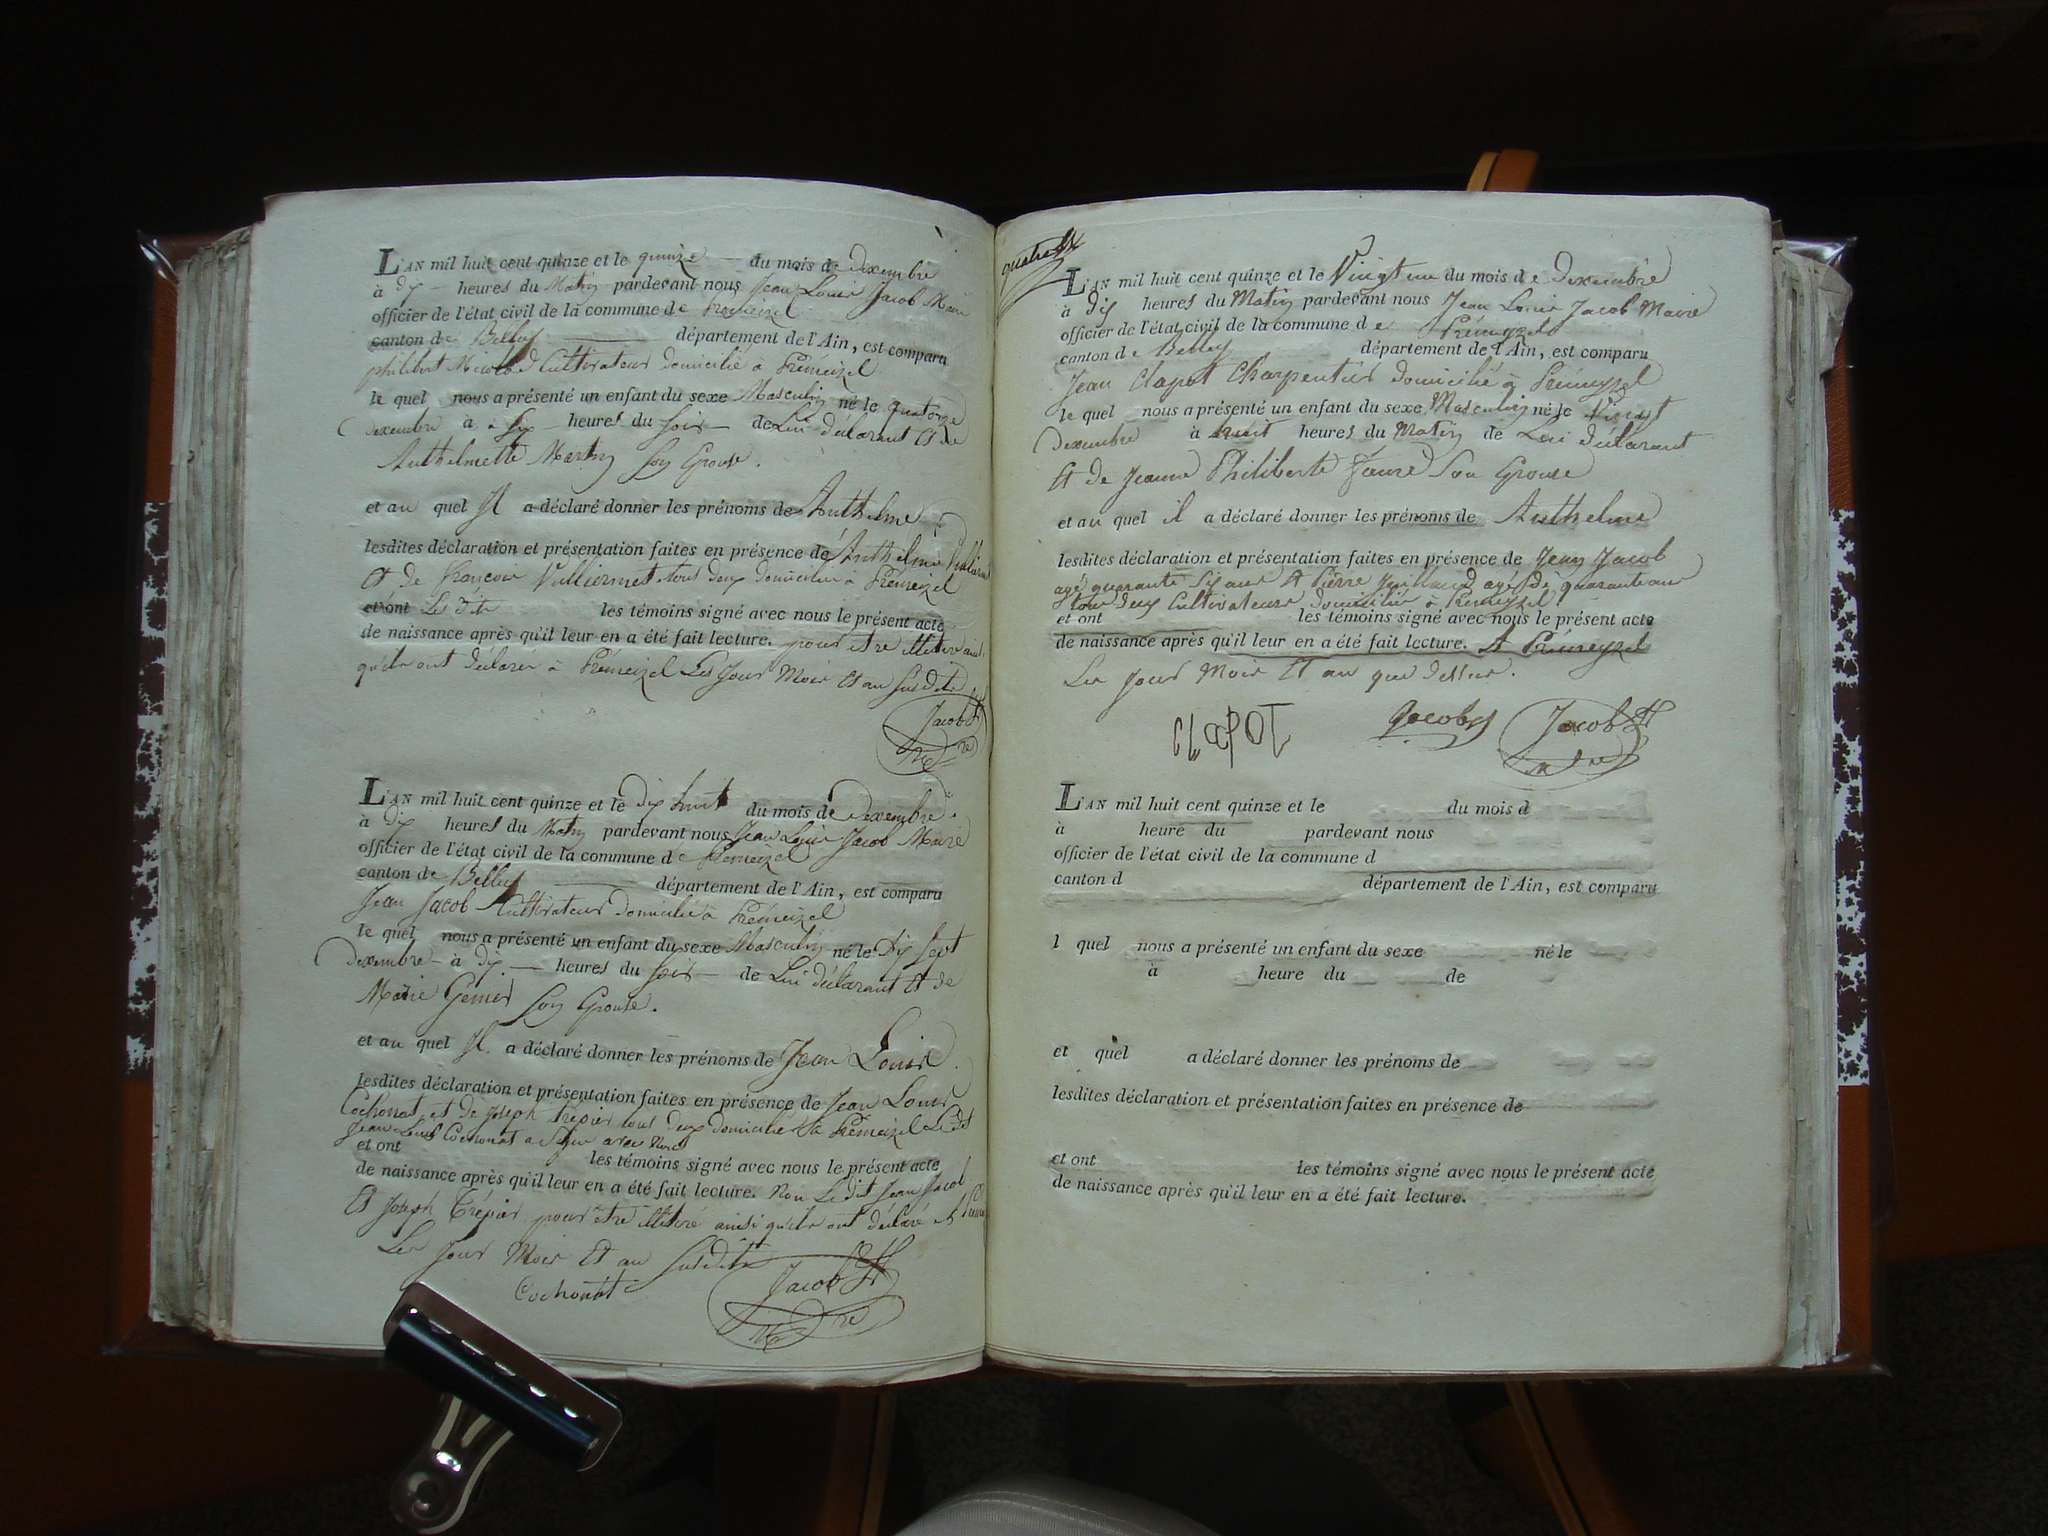 L'AN mil huit cent quinze et le quinze du mois de Dexembre
à dix heures du Matin pardevant nous Jean Louis Jacob Maire
officier de l'état civil de la commune de Prémeizel
canton de Belley département de l'Ain, est comparu
philibert Cultivateur domicilié à Prémeizel
le quel nous a présenté un enfant du sexe Masculin né le quatorze
Dexembre à heures du soir de Lui déclarant et de
Anthelmette Martin son Epouse.
et au quel Il a déclaré donner les prénoms de Anthelme
lesdites déclaration et présentation faites en présence de Anthelme
et de François Vulliermet tous deux domiciliés à Prémeizel
et ont Les dits les témoins signé avec nous le présent acte
de naissance après qu'il leur en a été fait lecture. pour etre
qu'ils ont déclaré à Prémeizel Les Jour Mois et an susdits
Jacob
L'AN mil huit cent quinze et le dix huit du mois de Dexembre.
à dix heures du Matin pardevant nous Jean Louis Jacob Maire
officier de l'état civil de la commune de Prémeizel
canton de Belley département de l'Ain, est comparu
Jean Jacob Cultivateur domicilié à Prémeizel
le quel nous a présenté un enfant du sexe Masculin né le Dix Sept
Dexembre à dix heures du soir de Lui déclarant et de
Marie son Epouse.
et au quel Il a déclaré donner les prénoms de Jean Louis.
lesdites déclaration et présentation faites en présence de Jean Louis
Cochonat et de Joseph Trépier tous deux domiciliés à Prémeizel Ledit
Jean Louis Cochonat a signé avec nous
et ont les témoins signé avec nous le présent acte
de naissance après qu'il leur en a été fait lecture. Non Ledit Jean Jacob
Et Joseph Trépier pour être ainsi qu'ils ont déclaré
Les Jour Mois Et an susdits
Cochonat Jacob
L'AN mil huit cent quinze et le Vingt un du mois de Dexembre
à dix heures du Matin pardevant nous Jean Louis Jacob Maire
officier de l'état civil de la commune de Prémeyzel
canton de Belley département de l'Ain, est comparu
Jean Clapot Charpentier domicilié à Prémeyzel
le quel nous a présenté un enfant du sexe Masculin né le Vingt
Dexembre à huit heures du Matin de Lui déclarant
Et de Jeanne Philiberte son Epouse
et au quel il a déclaré donner les prénoms de Anthelme
lesdites déclaration et présentation faites en présence de Jean Jacob
agé quarante six ans Et Pierre agé de quarante ans
tous deux Cultivateurs domiciliés à Prémeyzel
et ont les témoins signé avec nous le présent acte
de naissance après qu'il leur en a été fait lecture. A Prémeyzel
Les Jour Mois Et an que dessus.
CLAPOT Jacob Jacob
L'AN mil huit cent quinze et le du mois d
à heure du pardevant nous
officier de l'état civil de la commune d
canton d département de l'Ain, est comparu
l quel nous a présenté un enfant du sexe né le
à heure du de
et quel a déclaré donner les prénoms de
lesdites déclaration et présentation faites en présence de
et ont les témoins signé avec nous le présent acte
de naissance après qu'il leur en a été fait lecture.